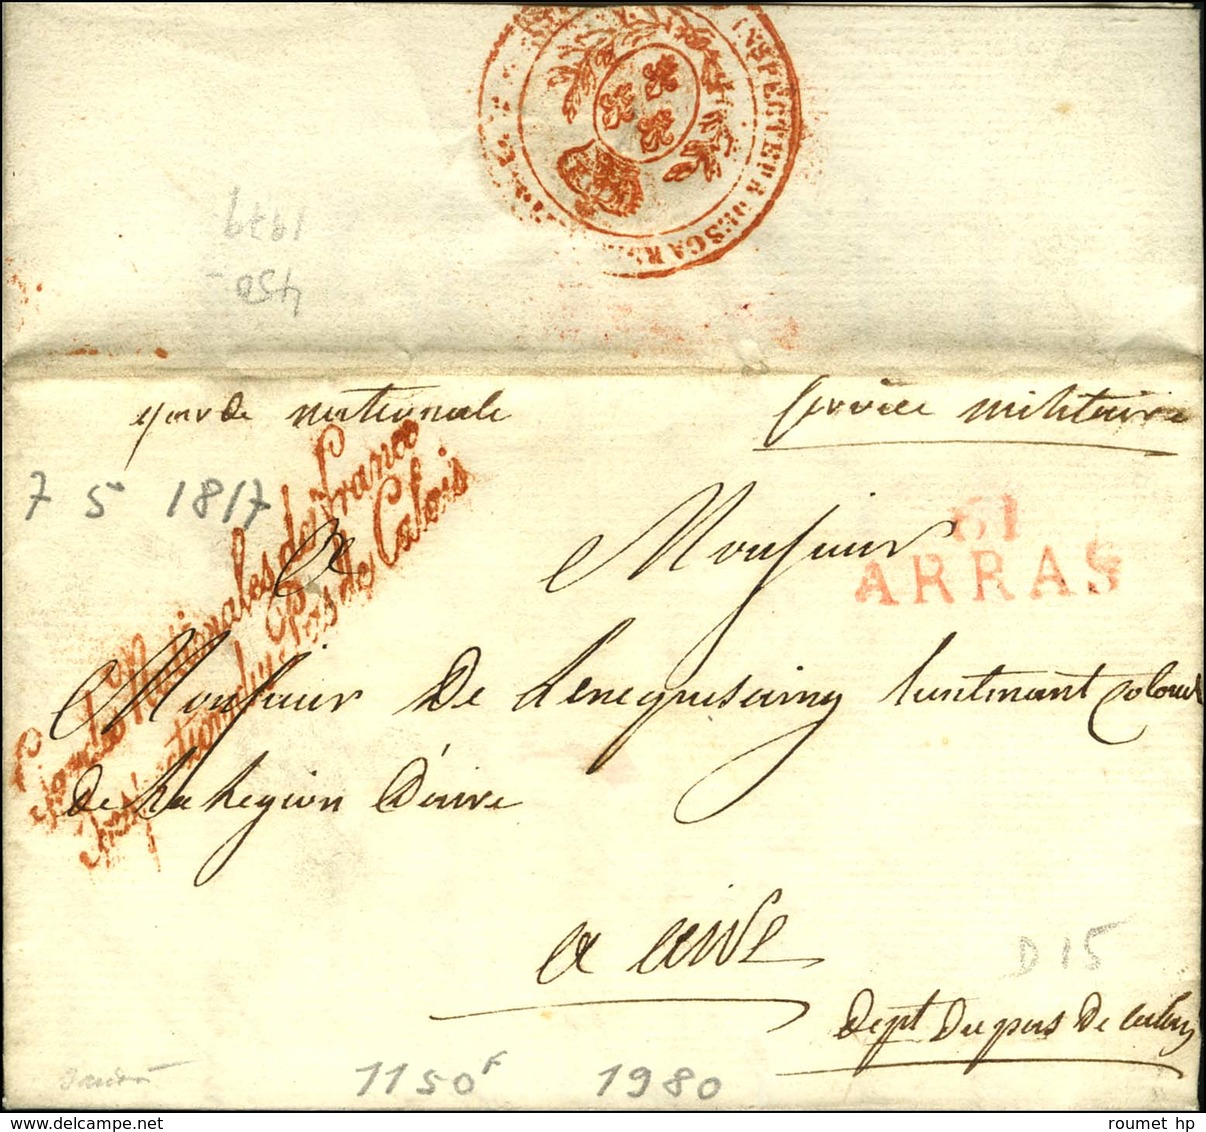 INSPECTEUR DES GAR
1979
450-
garde nationale
service militaire
7 5 1817
Gardes Nationales de France
Inspection du Pas de Calais
61
ARRAS
A Monsieur
Monsieur De Lenequesaing lieutenant Colonel
de la Legion D'aire
a aire
Dept Du pas De calais
D 15
1150F
1980
roumet hp